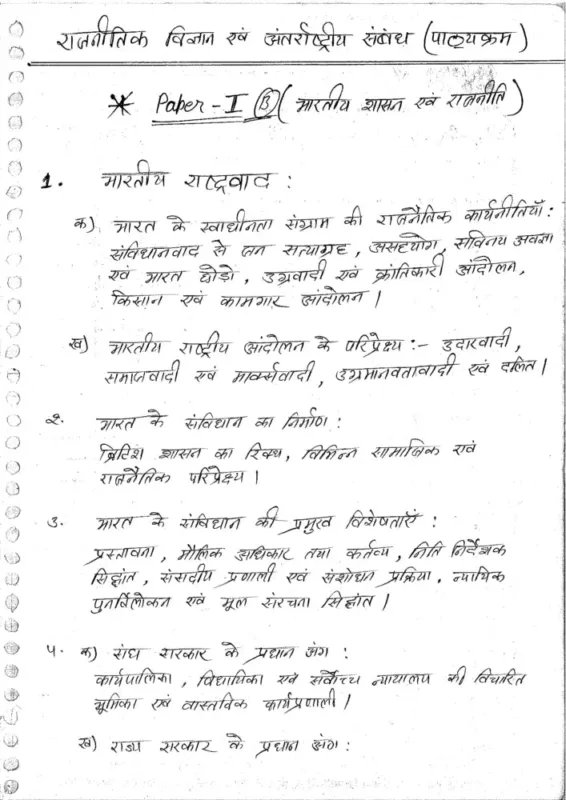 राजनीतिक विज्ञान एवं अंतर्राष्ट्रीय संबंध (पाठ्यक्रम)
* Paper - I (B) (भारतीय शासन एवं राजनीति)
1. भारतीय राष्ट्रवाद :
क) भारत के स्वाधीनता संग्राम की राजनैतिक कार्यनीतियाँ :
संविधानवाद से जन सत्याग्रह, असहयोग, सविनय अवज्ञा
एवं भारत छोड़ो, उग्रवादी एवं क्रांतिकारी आंदोलन,
किसान एवं कामगार आंदोलन।
ख) भारतीय राष्ट्रीय आंदोलन के परिप्रेक्ष्य :- उदारवादी,
समाजवादी एवं मार्क्सवादी, उग्रमानवतावादी एवं दलित।
2. भारत के संविधान का निर्माण :
ब्रिटिश शासन का रिक्थ, विभिन्न सामाजिक एवं
राजनैतिक परिप्रेक्ष्य।
3. भारत के संविधान की प्रमुख विशेषताएँ :
प्रस्तावना, मौलिक अधिकार तथा कर्तव्य, निति निर्देशक
सिद्धांत, संसदीय प्रणाली एवं संशोधन प्रक्रिया, न्यायिक
पुनर्विलोकन एवं मूल संरचना सिद्धांत।
४. क) संघ सरकार के प्रधान अंग :
कार्यपालिका, विधायिका एवं सर्वोच्च न्यायालय की विचारित
भूमिका एवं वास्तविक कार्यप्रणाली।
ख) राज्य सरकार के प्रधान अंग :